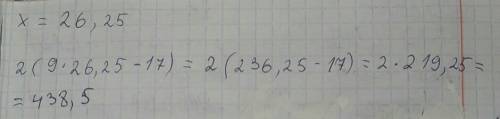 x = 26,25
2(9·26,25-17) = 2(236,25-17) = 2·219,25=
= 438,5